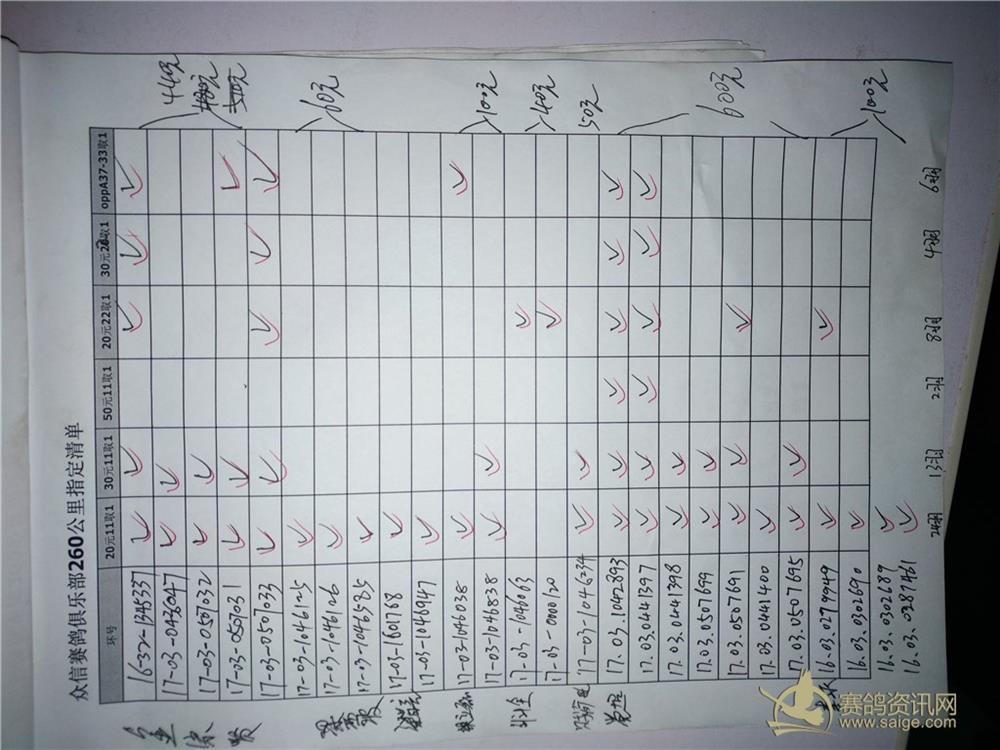 众信赛鸽俱乐部260公里指定清单
环号 20元11取1 30元11取1 50元11取1 20元22取1 30元 取1 oppA37-33取1
1632-1345337
17-03-043604
17-03-0507032
17-03-0507031
17-03-0507033
17-03-1046125
17-03-1046126
17-03-1046585
17-03-1601768
17-03-1046947
17-03-1046038
17-03-1046838
17-03-1046063
17-03-0000120
17-03-1046234
17.03.1042893
17.03.0441397
17.03.0441398
17.03.0507699
17.03.0507691
17.03.0441400
17.03.0507695
16.03.0279949
16.03.0302690
16.03.0302689
16.03.0287461
24羽 13羽 2羽 8羽 4羽 6羽
440元
60元
100元
40元
50元
600元
100元
赛鸽资讯网
www.saige.com